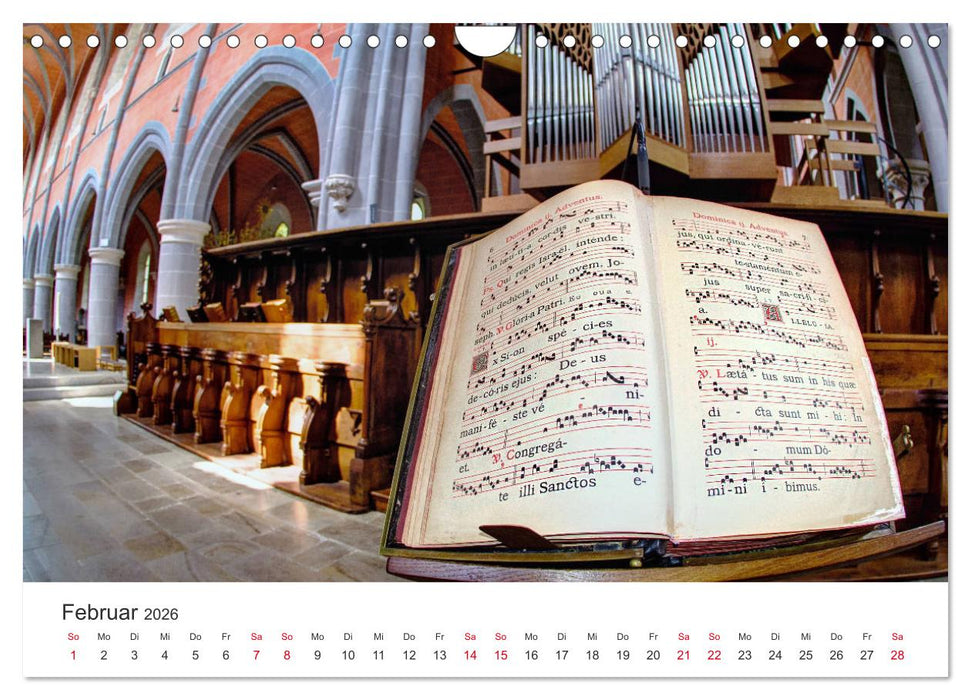 6 Dominica ij. Adventus.
in lætí-ti-a cordis ve-stri.
Ps. Qui regis Israel, intende:
qui dedúcis, velut ovem, Jo-
seph. ℣. Glória Patri. E u o u a e
Ex Si-on spé - ci-es
de-có-ris ejus: De - us
mani-fé - ste vé - ni-
et. ℣. Congregá-
te illi Sanctos e-
Dominica ij. Adventus. 7
jus, qui ordina-vé-runt
testamentum e-
jus super sa-cri-fi-ci-
a. ALLELÚ-IA.
ij.
℣. Lætá - tus sum in his quæ
di - cta sunt mi - hi: In
do - mum Dó-
mi-ni i - bimus.
Februar 2026
So Mo Di Mi Do Fr Sa So Mo Di Mi Do Fr Sa So Mo Di Mi Do Fr Sa So Mo Di Mi Do Fr Sa
1 2 3 4 5 6 7 8 9 10 11 12 13 14 15 16 17 18 19 20 21 22 23 24 25 26 27 28